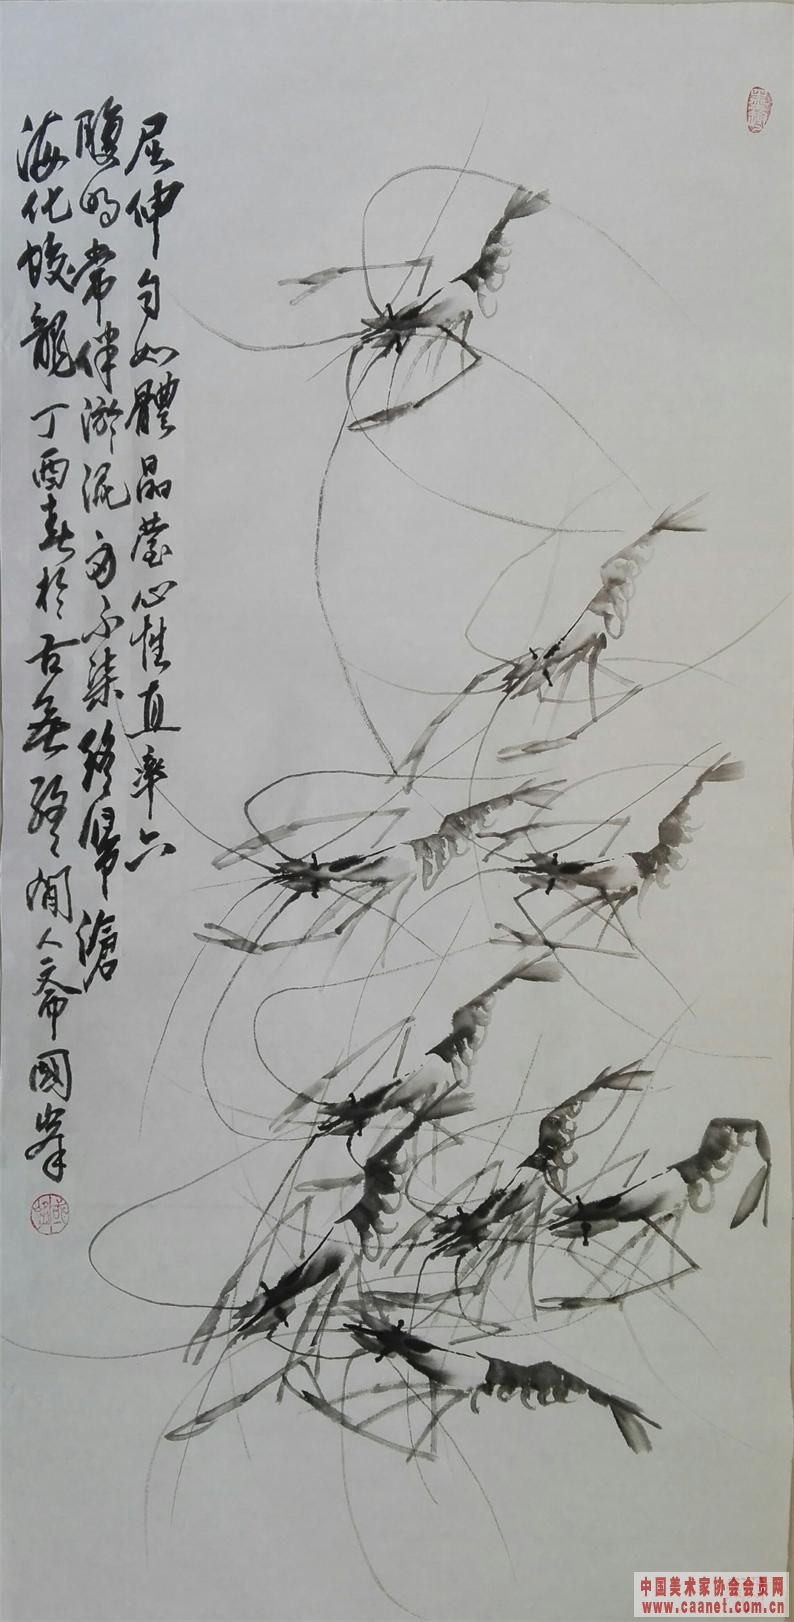 屈伸自如體晶瑩心性直率六
腹明常伴游泥而不染終歸滄
海化蛟龍丁酉春於古無爭閒人齋國峯
中国美术家协会会员网
www.caanet.com.cn